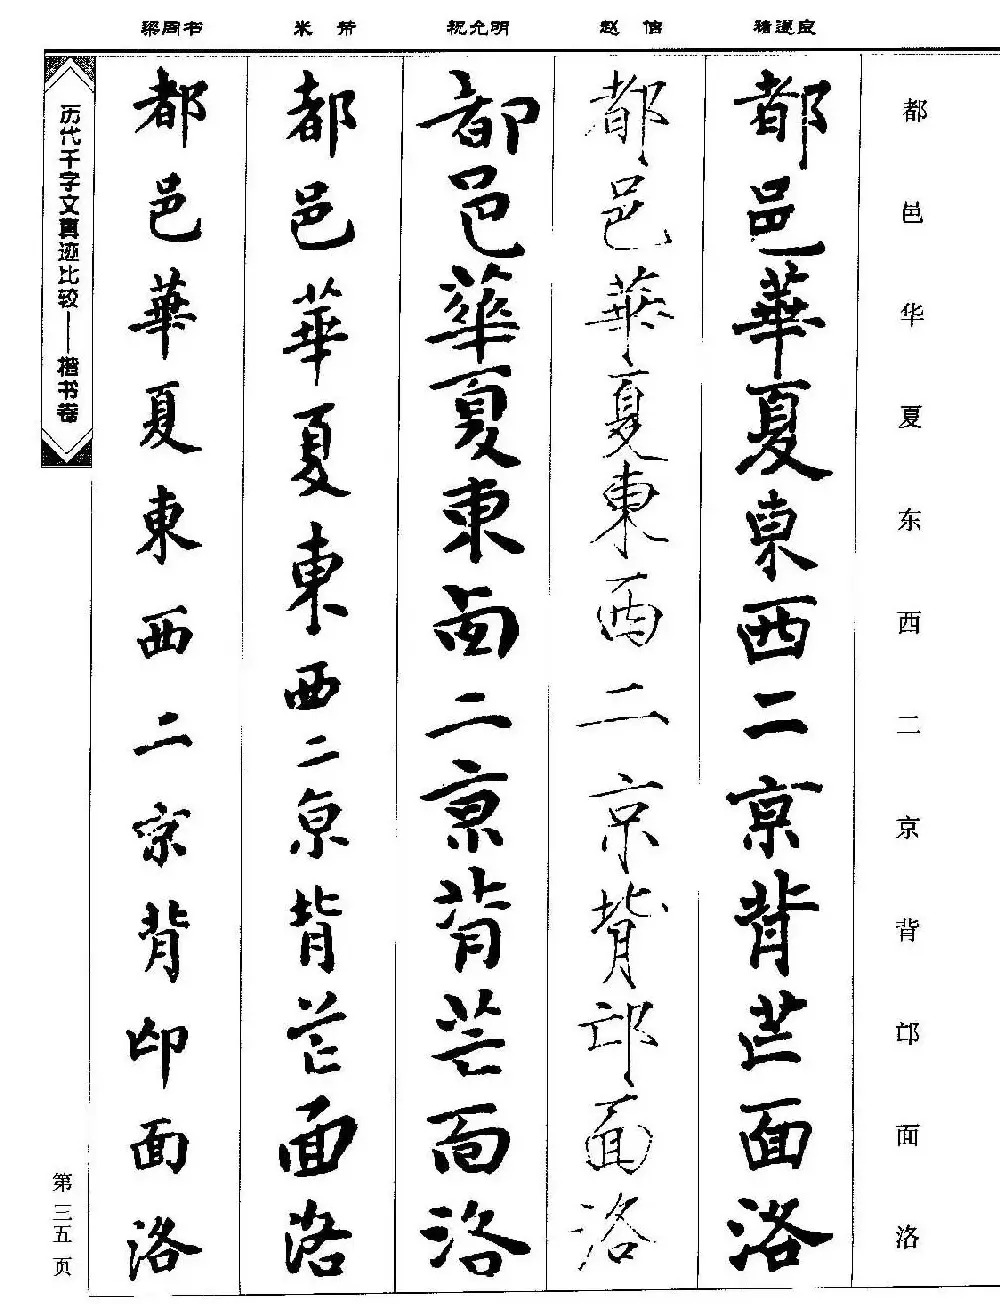 褚遂良
赵佶
祝允明
米芾
梁同书
都邑华夏东西二京背邙面洛
都邑華夏東西二京背芒面洛
都邑華夏東西二京背邙面洛
都邑華夏東西二京背芒面洛
都邑華夏東西二京背芒面洛
都邑華夏東西二京背邙面洛
历代千字文真迹比较——楷书卷
第三五页